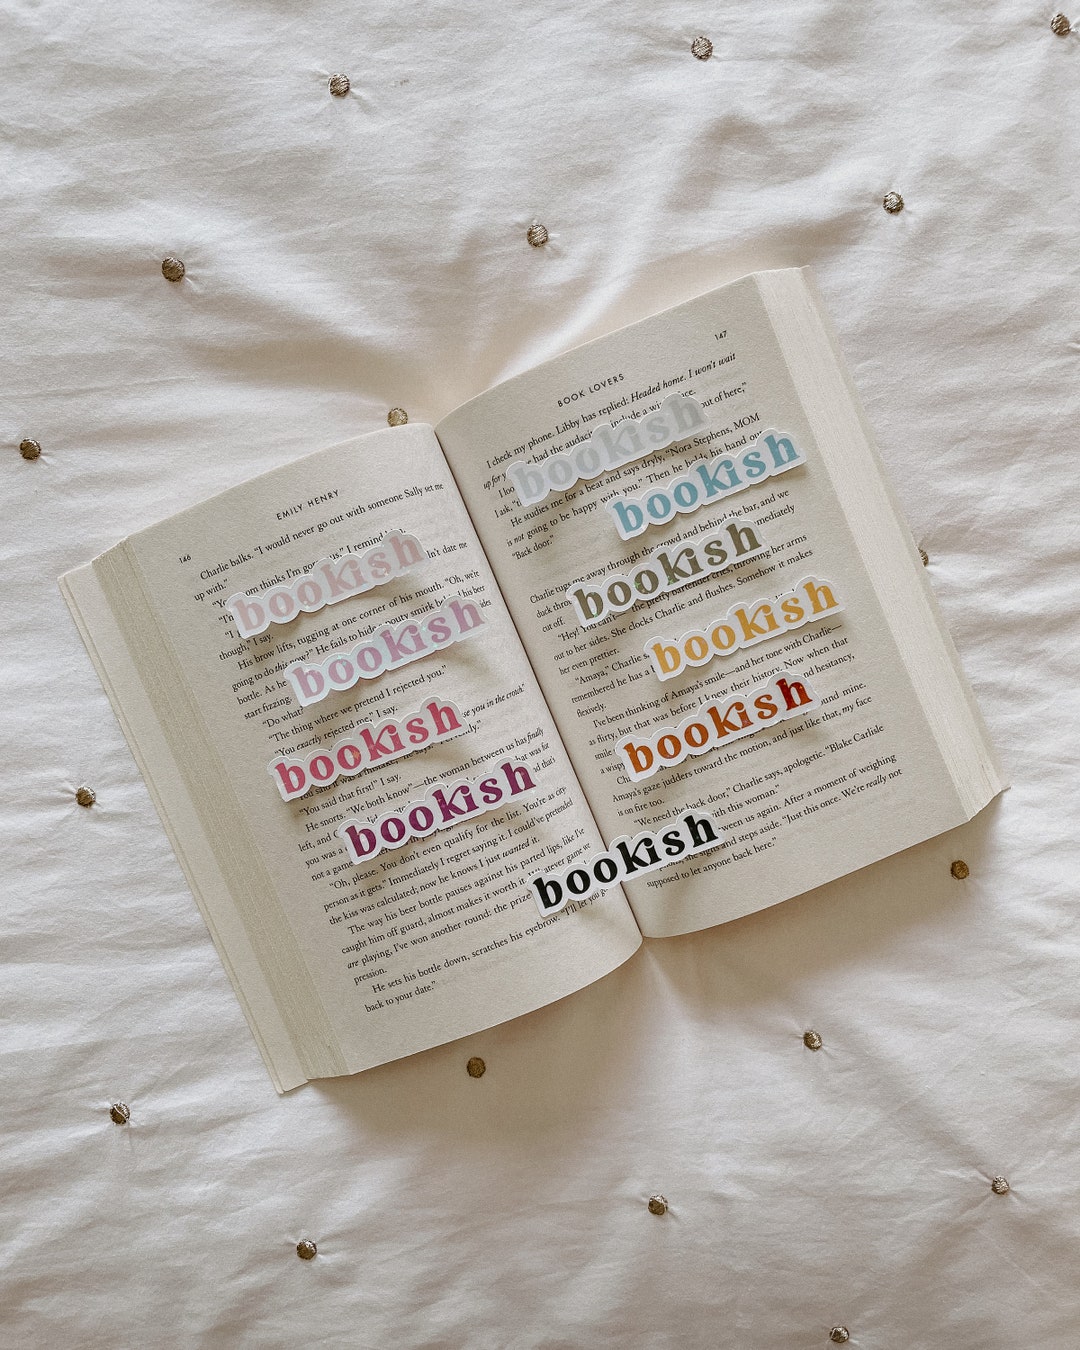 146
EMILY HENRY
Charlie balks. “I would never go out with someone Sally set me
up with.”
om thinks I’m go us,” I remind
n’t date me
though,” I say.
His brow lifts, tugging at one corner of his mouth. “Oh, we’re
going to do this now?” He fails to hide a pouty smirk behind his beer
bottle. As he
start fizzing.
“Do what
“The thing where we pretend I rejected you.”
“You exactly rejected me,” I say.
se you in the crotch
said it was a mistake,” he says.
“You said that first!” I say.
He snorts. “We both know”—the woman between us has finally
left, and
you was a
not a game
“Oh, please. You don’t even qualify for the list. You’re as city-
person as it gets.” Immediately I regret saying it. I could’ve pretended
the kiss was calculated; now he knows I just wanted it.
The way his beer bottle pauses against his parted lips, like I’ve
caught him off guard, almost makes it worth it. Whatever game we
are playing, I’ve won another round: the prize
pression.
He sets his bottle down, scratches his eyebrow. “I’ll let you
back to your date.”
bookish
bookish
bookish
bookish
BOOK LOVERS
147
I check my phone. Libby has replied: Headed home. I won’t wait
up for y had the audacity include a wi face.
I loo out of here,”
I ask, “
He studies me for a beat and says dryly, “Nora Stephens, MOM
is not going to be happy with you.” Then he holds his hand out
“Back door.”
Charlie tugs me away through the crowd and behind the bar, and we
duck thro mmediately
cut off.
“Hey! You can’t— the pretty bartender cries, throwing her arms
out to her sides. She clocks Charlie and flushes. Somehow it makes
her even prettier.
“Amaya,” Charlie s
remembered he has a
flexively.
I’ve been thinking of Amaya’s smile—and her tone with Charlie—
as flirty, but that was before I knew their history. Now when that
smile and hesitancy,
a wisp ound mine.
Cha
Amaya’s gaze judders toward the motion, and just like that, my face
is on fire too.
“We need the back door,” Charlie says, apologetic. “Blake Carlisle
with this woman.”
ween us again. After a moment of weighing
she sighs and steps aside. “Just this once. We’re really not
supposed to let anyone back here.”
bookish
bookish
bookish
bookish
bookish
bookish